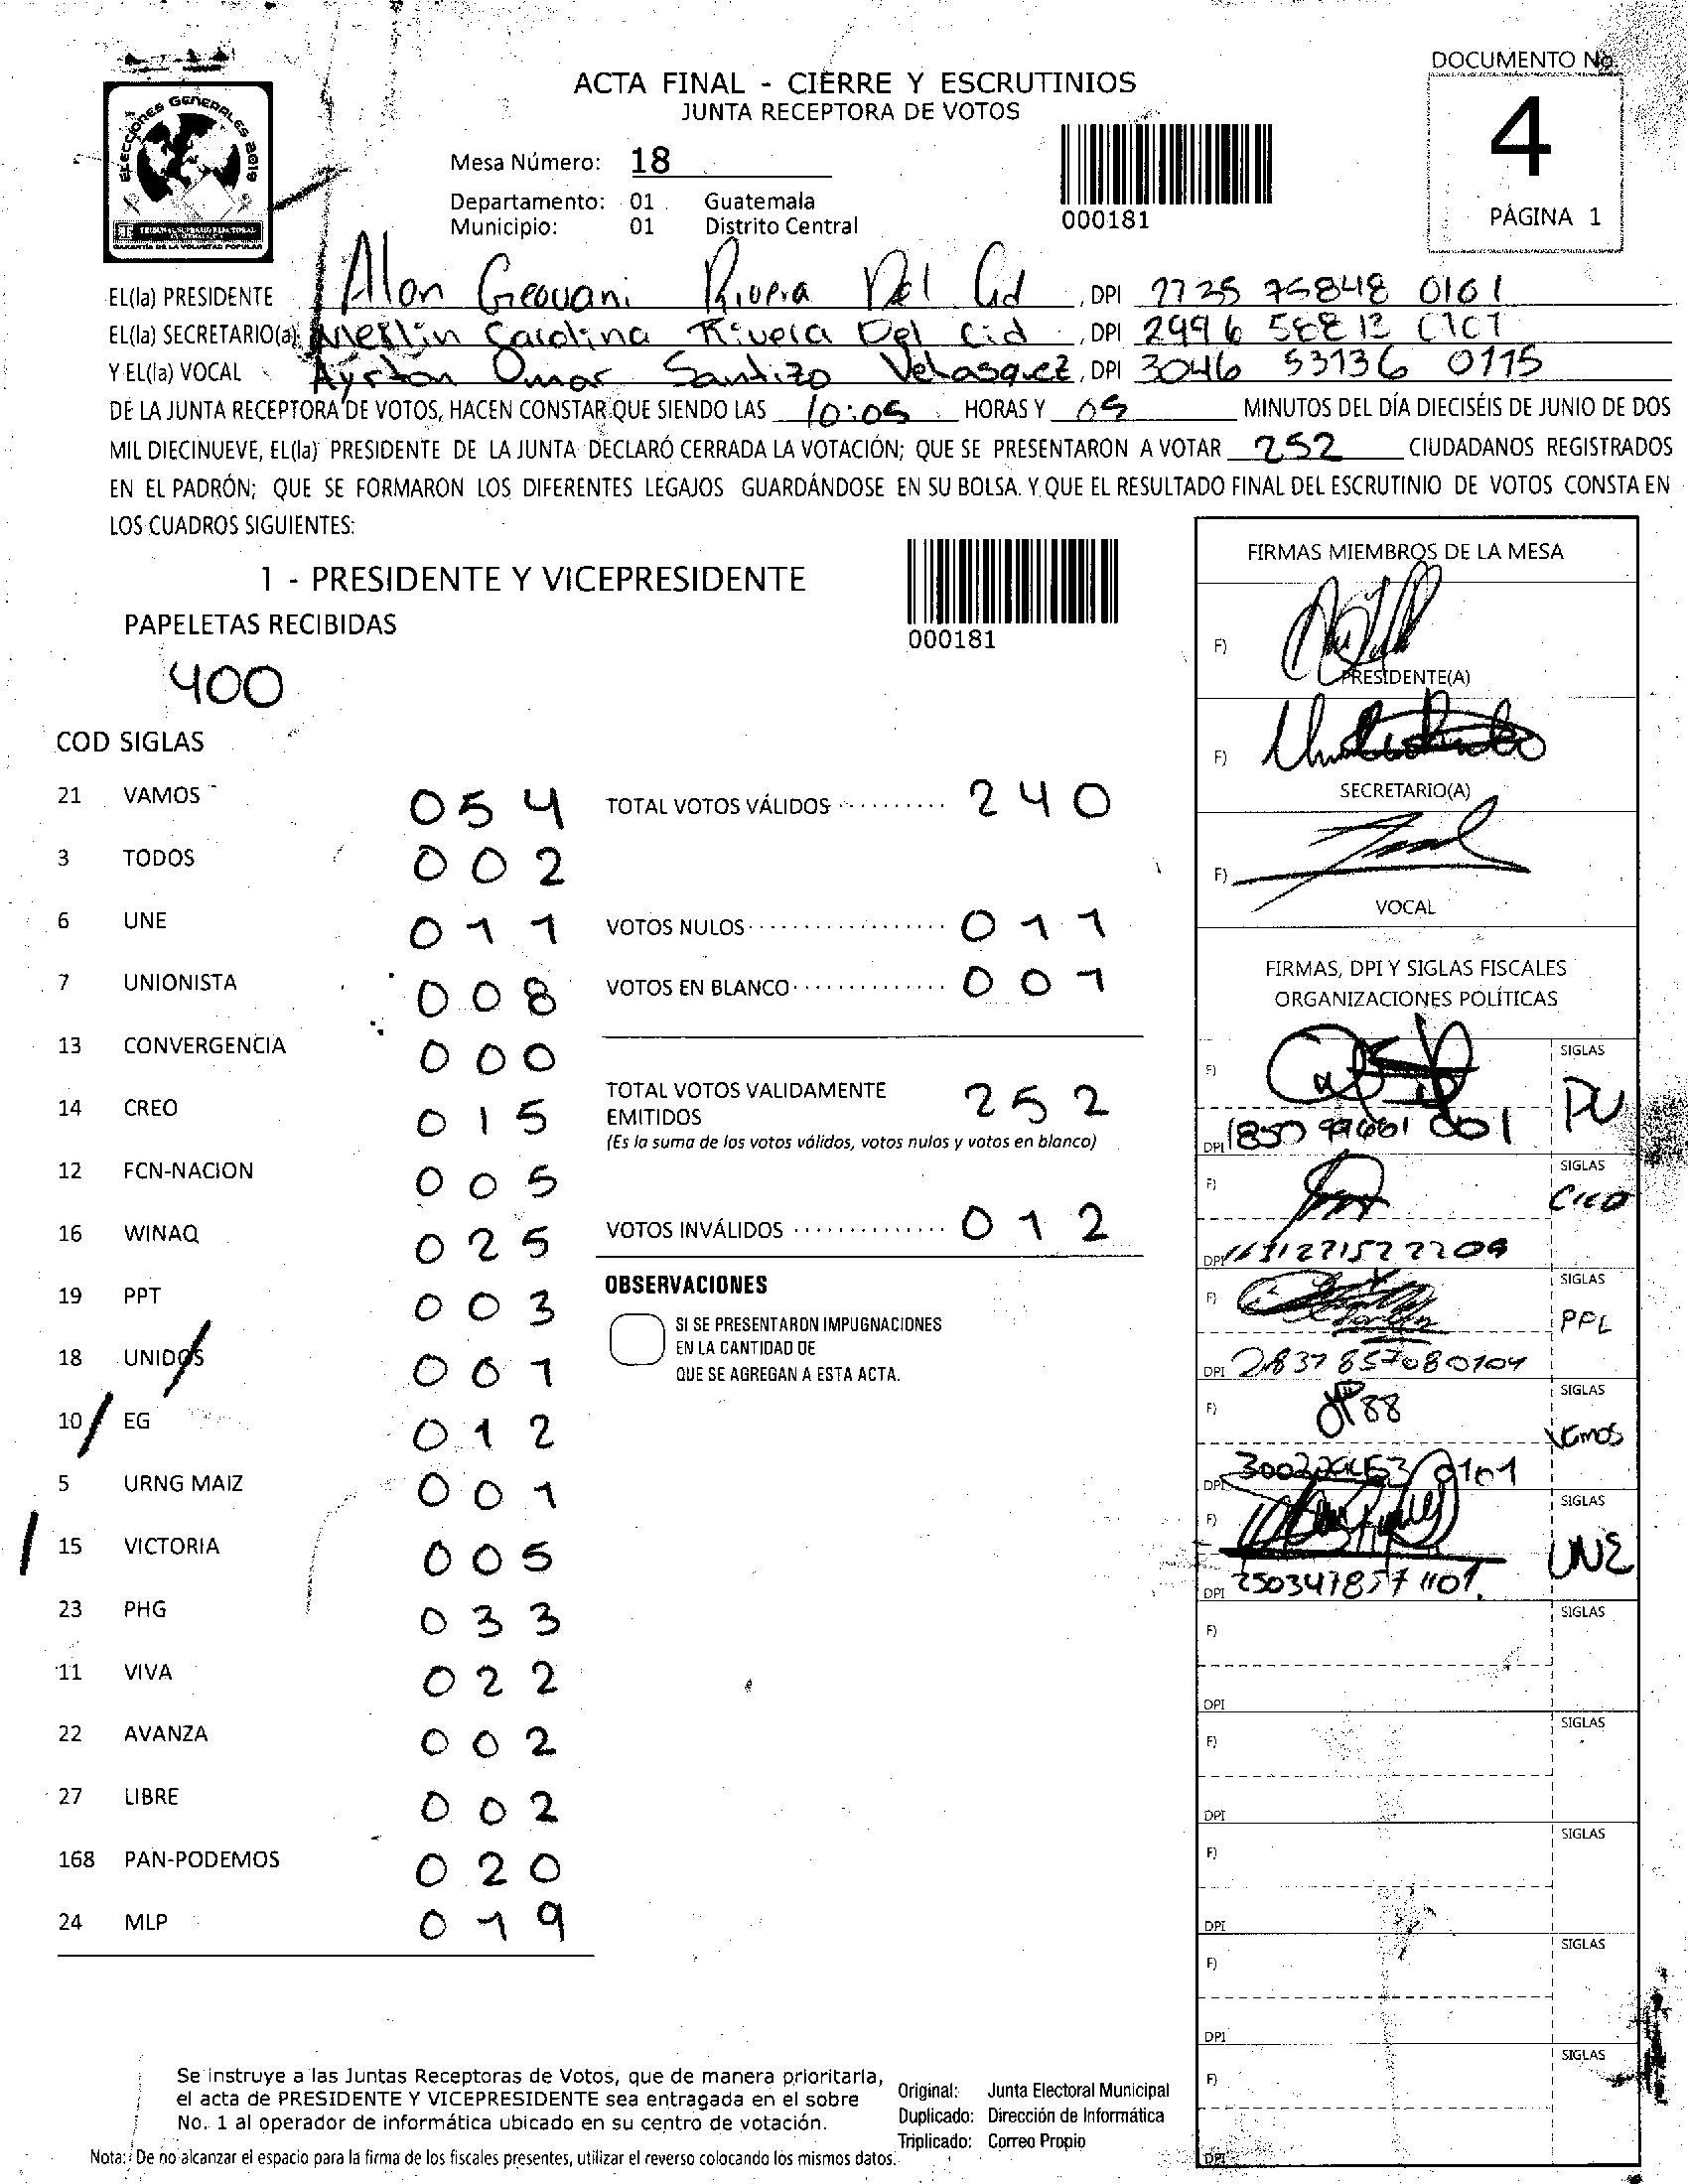 DOCUMENTO No.
4
PÁGINA 1
ELECCIONES GENERALES 2019
TRIBUNAL SUPREMO ELECTORAL
GARANTIA DE LA VOLUNTAD POPULAR
ACTA FINAL - CIERRE Y ESCRUTINIOS
JUNTA RECEPTORA DE VOTOS
Mesa Número: 18
Departamento: 01 Guatemala
Municipio: 01 Distrito Central
000181
EL(la) PRESIDENTE Alon Geovani Rivera Del Cid, DPI 2725 75848 0101
EL(la) SECRETARIO(a) Merlin Carolina Rivera Del Cid, DPI 2996
Y EL(la) VOCAL Ayrton Omar Santizo Velasquez, DPI 3046 53136 0115
DE LA JUNTA RECEPTORA DE VOTOS, HACEN CONSTAR QUE SIENDO LAS 10:05 HORAS Y 05 MINUTOS DEL DÍA DIECISÉIS DE JUNIO DE DOS
MIL DIECINUEVE, EL(la) PRESIDENTE DE LA JUNTA DECLARÓ CERRADA LA VOTACIÓN; QUE SE PRESENTARON A VOTAR 252 CIUDADANOS REGISTRADOS
EN EL PADRÓN; QUE SE FORMARON LOS DIFERENTES LEGAJOS GUARDÁNDOSE EN SU BOLSA. Y QUE EL RESULTADO FINAL DEL ESCRUTINIO DE VOTOS CONSTA EN
LOS CUADROS SIGUIENTES:
1 - PRESIDENTE Y VICEPRESIDENTE
PAPELETAS RECIBIDAS
400
000181
COD SIGLAS
21 VAMOS 054
3 TODOS 002
6 UNE 011
7 UNIONISTA 008
13 CONVERGENCIA 000
14 CREO 015
12 FCN-NACION 005
16 WINAQ 025
19 PPT 003
18 UNIDOS 001
10 EG 012
5 URNG MAIZ 001
15 VICTORIA 005
23 PHG 033
11 VIVA 022
22 AVANZA 002
27 LIBRE 002
168 PAN-PODEMOS 020
24 MLP 019
TOTAL VOTOS VÁLIDOS .......... 240
VOTOS NULOS .................. 011
VOTOS EN BLANCO .............. 001
TOTAL VOTOS VALIDAMENTE
EMITIDOS 252
(Es la suma de los votos válidos, votos nulos y votos en blanco)
VOTOS INVÁLIDOS .............. 012
OBSERVACIONES
SI SE PRESENTARON IMPUGNACIONES
EN LA CANTIDAD DE
QUE SE AGREGAN A ESTA ACTA.
FIRMAS MIEMBROS DE LA MESA
F)
PRESIDENTE(A)
F)
SECRETARIO(A)
F)
VOCAL
FIRMAS, DPI Y SIGLAS FISCALES
ORGANIZACIONES POLÍTICAS
F) SIGLAS
PU
DPI
F) SIGLAS
DPI
F) SIGLAS
PPL
DPI
F) SIGLAS
Vamos
DPI
F) SIGLAS
UNE
DPI
F) SIGLAS
DPI
F) SIGLAS
DPI
F) SIGLAS
DPI
F) SIGLAS
DPI
F) SIGLAS
DPI
Se instruye a las Juntas Receptoras de Votos, que de manera prioritaria,
el acta de PRESIDENTE Y VICEPRESIDENTE sea entragada en el sobre
No. 1 al operador de informática ubicado en su centro de votación.
Original: Junta Electoral Municipal
Duplicado: Dirección de Informática
Triplicado: Correo Propio
Nota: De no alcanzar el espacio para la firma de los fiscales presentes, utilizar el reverso colocando los mismos datos.